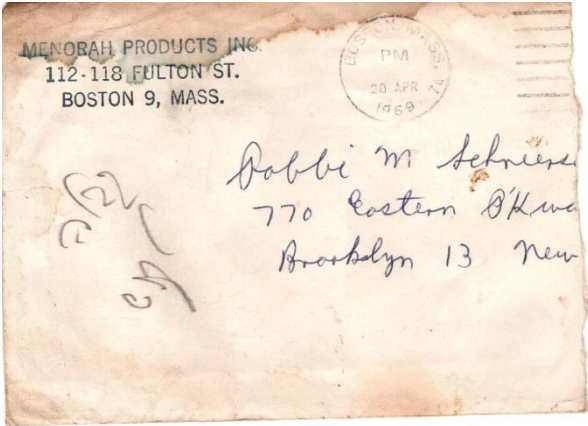 MENORAH PRODUCTS INC.
112-118 FULTON ST.
BOSTON 9, MASS.
BOSTON, MASS.
PM
20 APR
1969
Rabbi M Schneers
770 Eastern P'Kwa
Brooklyn 13 New